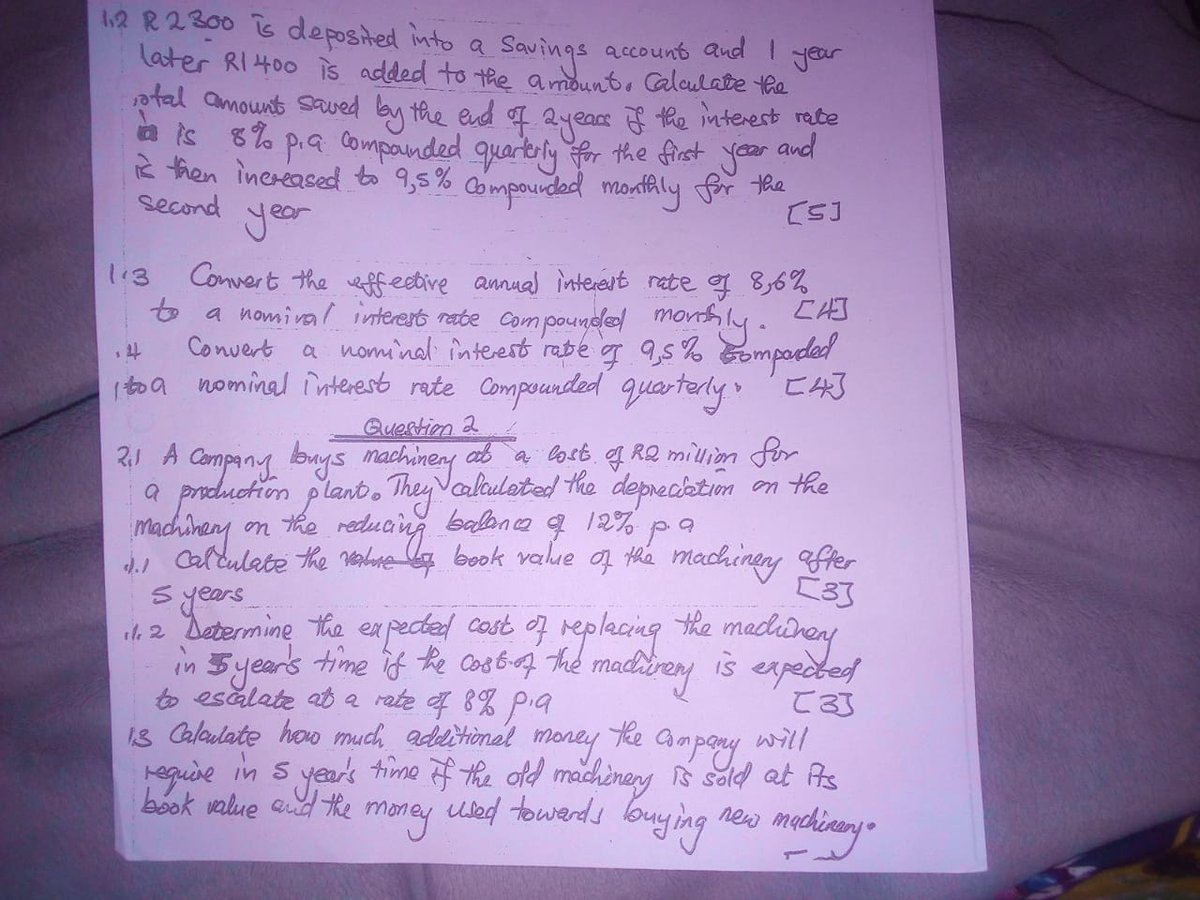 1.2 R2300 is deposited into a savings account and 1 year
later R1400 is added to the amount. Calculate the
total amount saved by the end of 2 years if the interest rate
is 8% p.a compounded quarterly for the first year and
is then increased to 9,5% compounded monthly for the
second year [5]
1.3 Convert the effective annual interest rate of 8,6%
to a nominal interest rate compounded monthly. [4]
.4 Convert a nominal interest rate of 9,5% compounded
to a nominal interest rate compounded quarterly. [4]
Question 2
2.1 A Company buys machinery at a cost of R2 million for
a production plant. They calculated the depreciation on the
machinery on the reducing balance of 12% p.a
.1.1 Calculate the value of book value of the machinery after
5 years [3]
.1.2 Determine the expected cost of replacing the machinery
in 5 year's time if the cost of the machinery is expected
to escalate at a rate of 8% p.a [3]
1.3 Calculate how much additional money the Company will
require in 5 year's time if the old machinery is sold at its
book value and the money used towards buying new machinery.